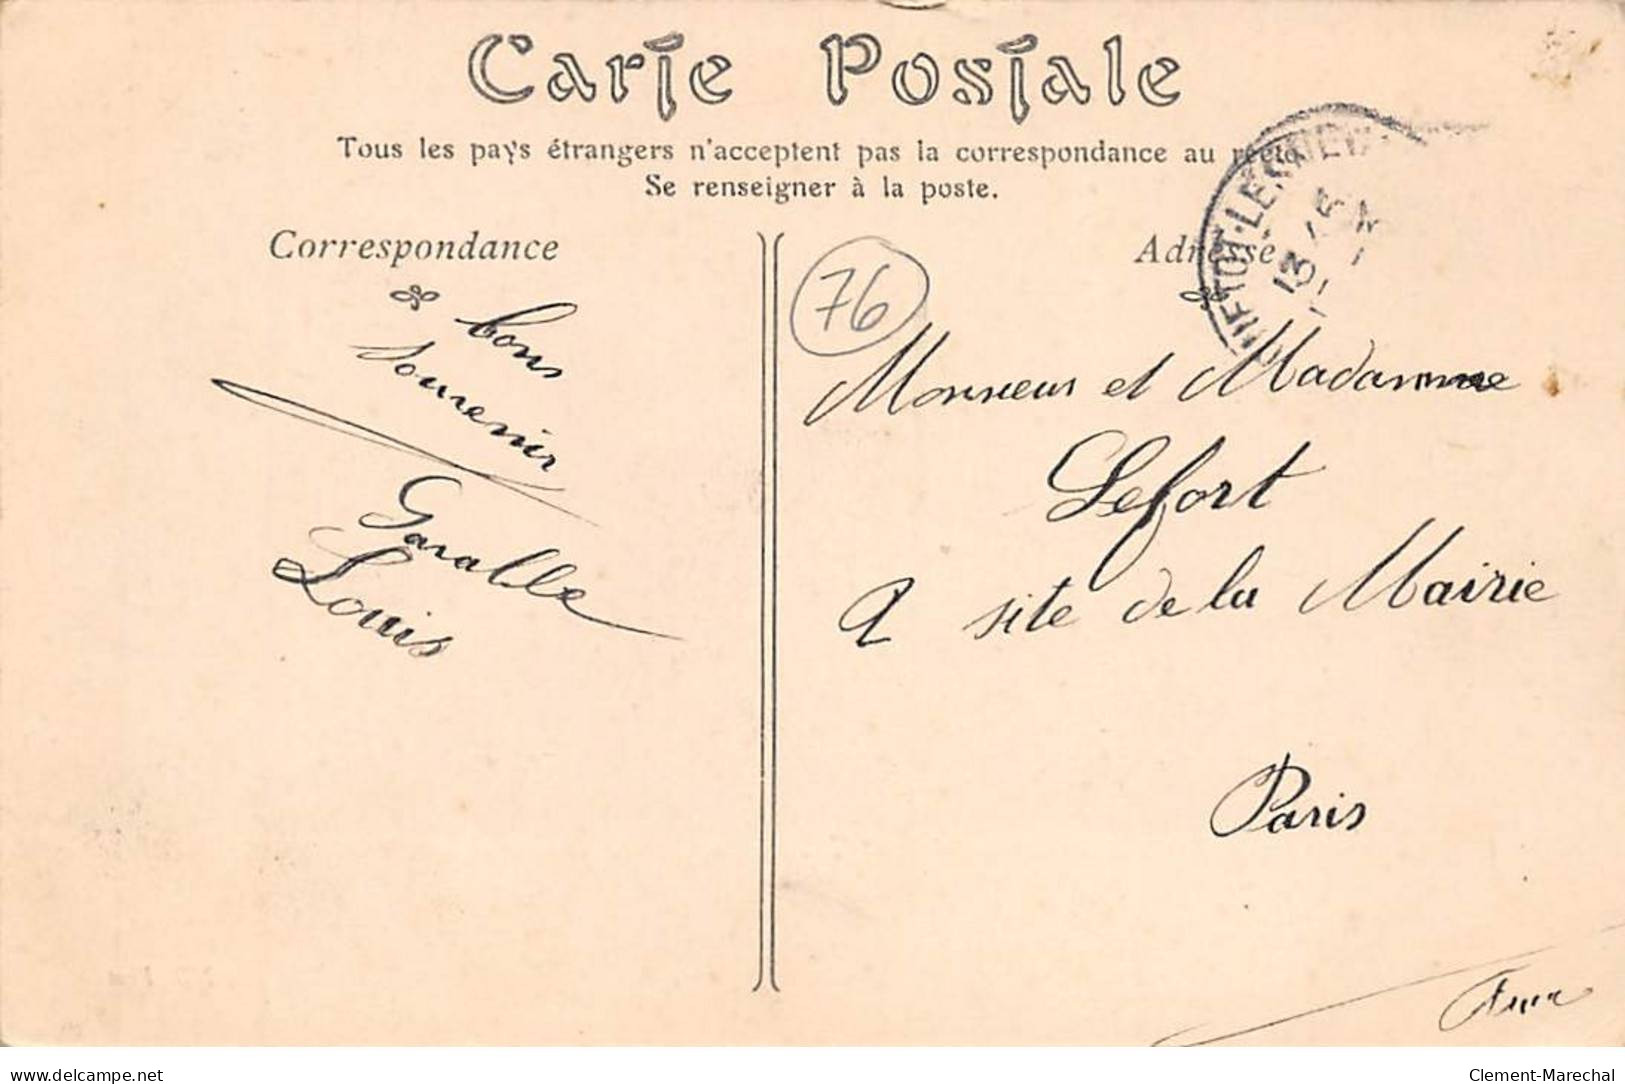 Carte Postale
Tous les pays étrangers n'acceptent pas la correspondance au recto
Se renseigner à la poste.
Correspondance
Adresse
76
13
bons
souvenir
Louis
Monsieur et Madame
Lefort
site de la Mairie
Paris
www.delcampe.net
Clement-Marechal